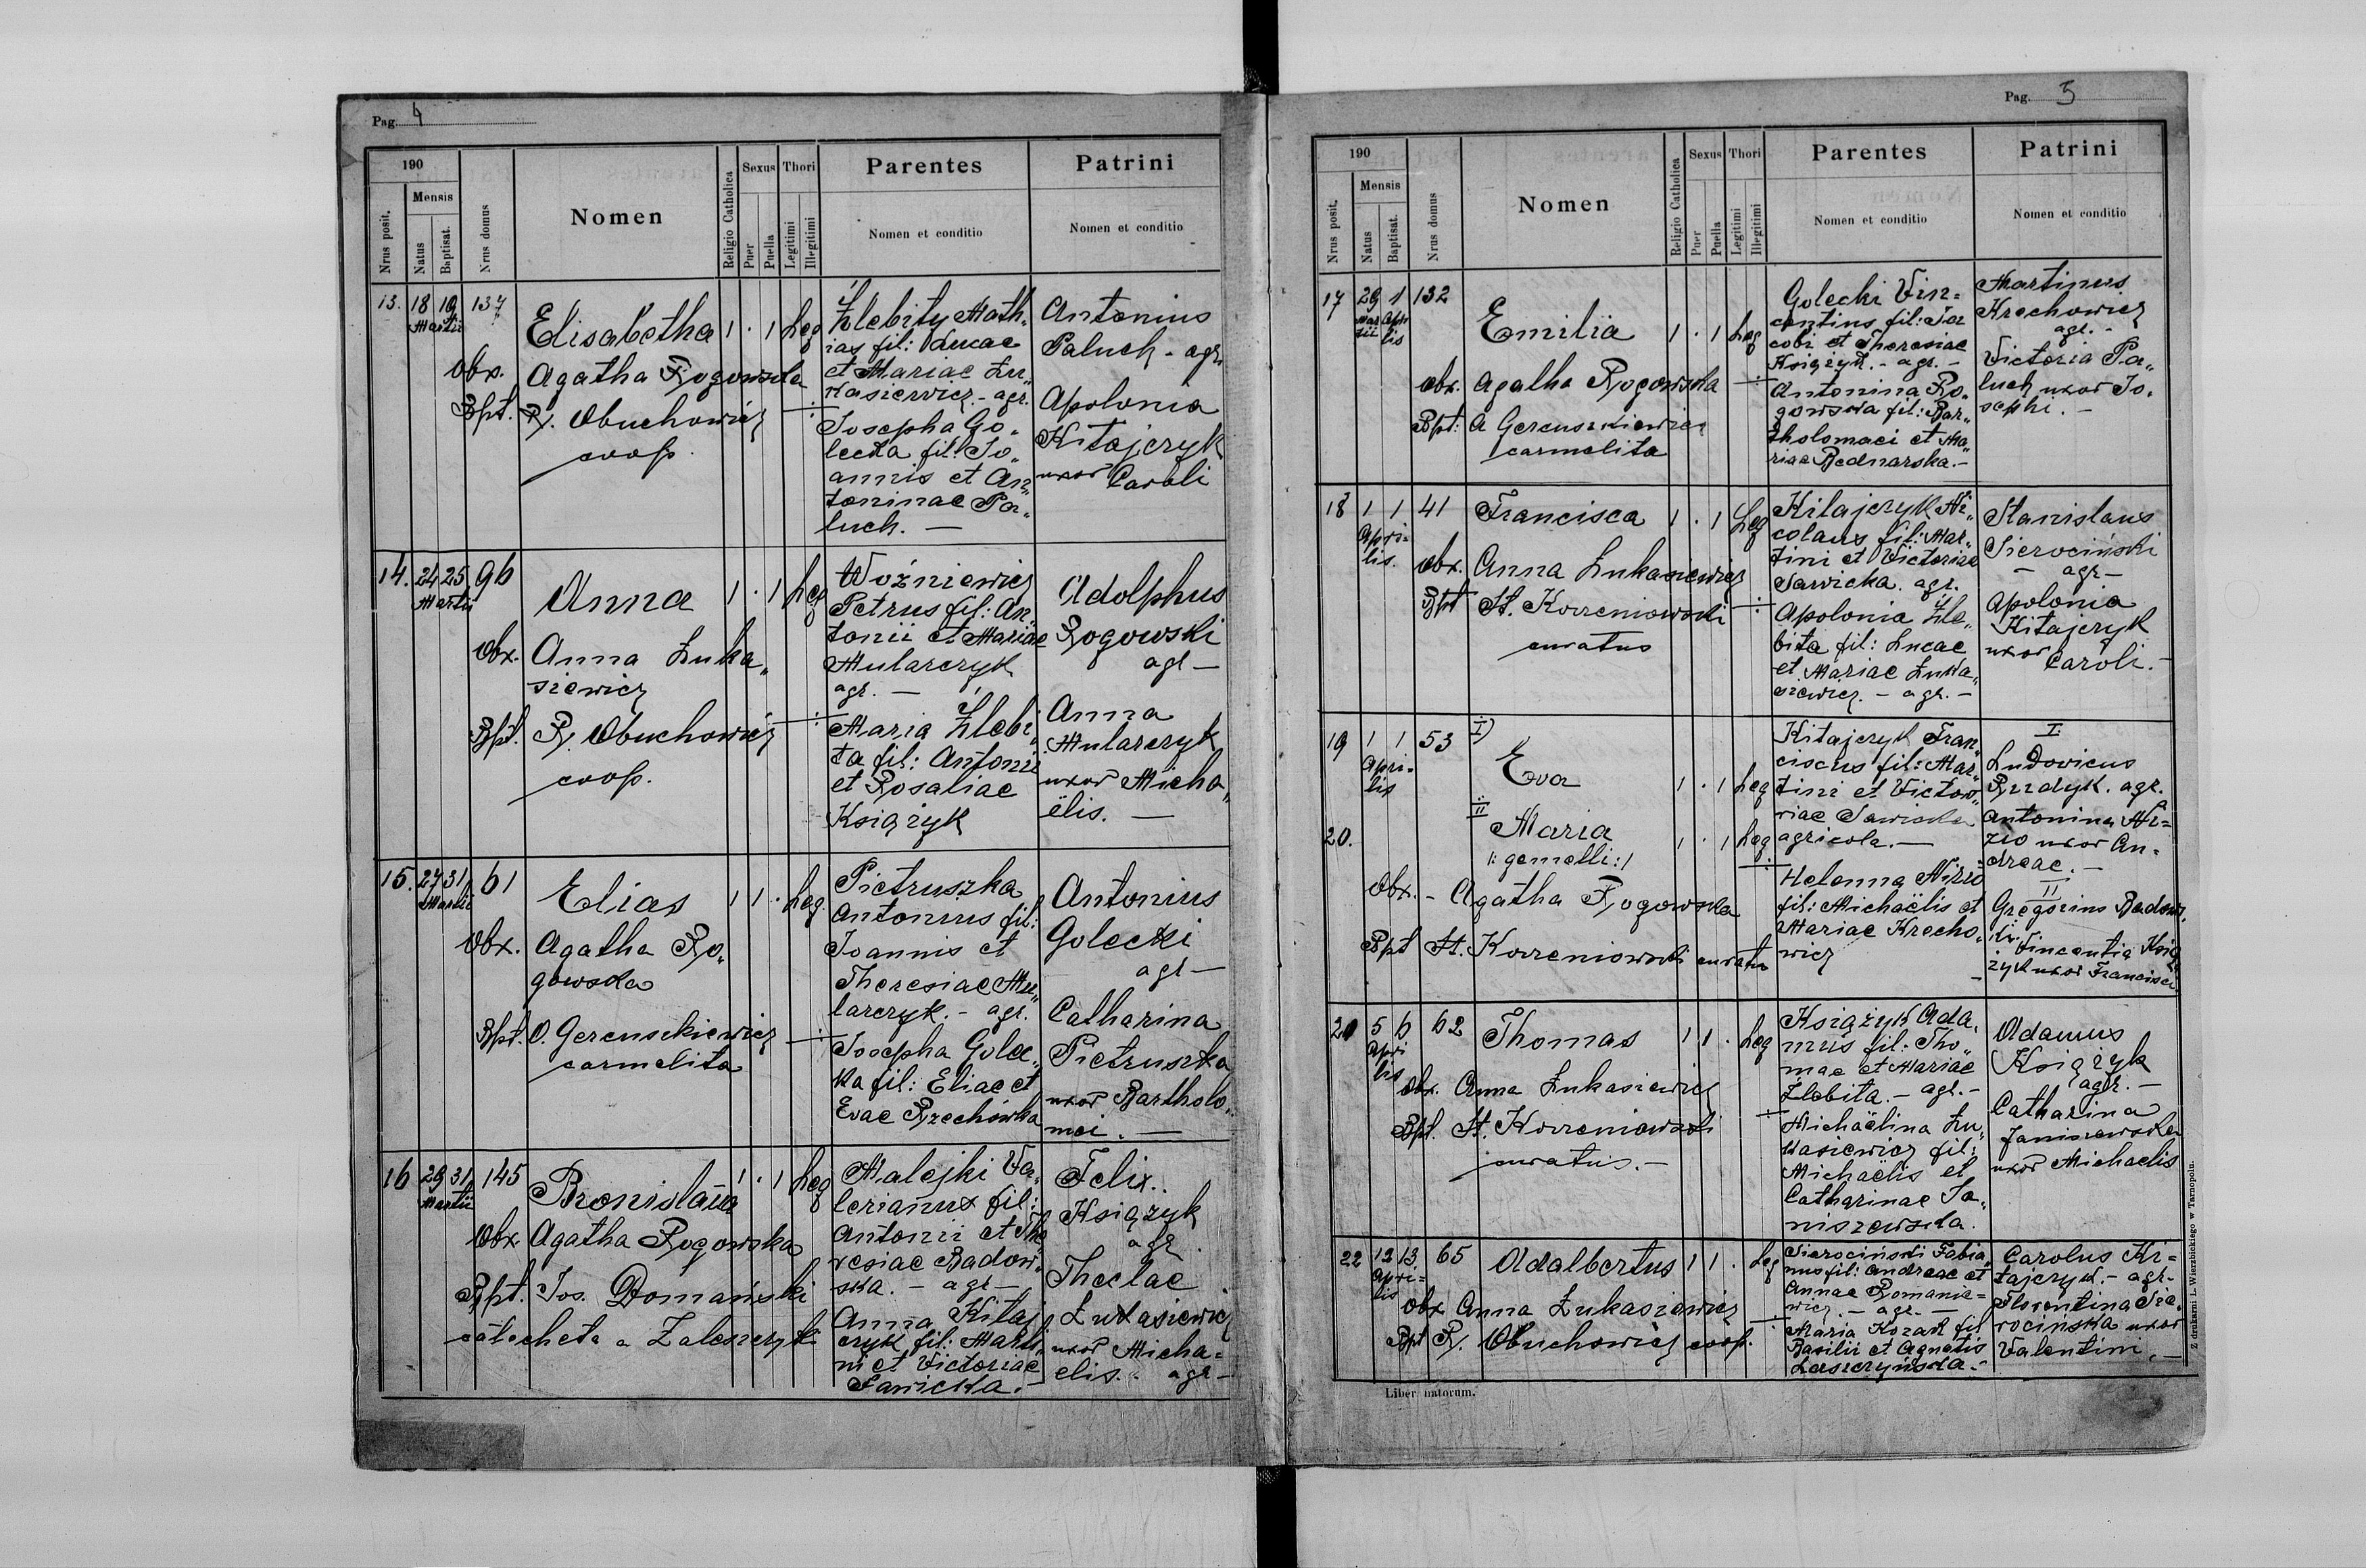 Pag. 4
190
Nrus posit.
Mensis
Natus
Baptisat.
Nrus domus
Nomen
Religio Catholica
Sexus
Puer
Puella
Thori
Legitimi
Illegitimi
Parentes
Nomen et conditio
Patrini
Nomen et conditio
13. 18 19 Martii 137
Elisabetha 1 . 1 Leg
Obx. Agatha Rogowska
Bpt. Ry. Obuchowicz
coop.
Żlebity Math„
ias fil: Lucae
et Mariae Łu„
kasiewicz. - agr.
Josepha Go„
lecka fil: Jo„
annis et An„
toninae Pa„
luch. —
Antonius
Paluch - agr.
Apolonia
Kitajczyk
uxor Caroli
14. 24 25 Martii 96
Anna 1 . 1 Leg
Obx. Anna Łuka„
siewicz
Bpt. Ry. Obuchowicz
coop.
Woźniewicz
Petrus fil: An„
tonii et Mariae
Mularczyk
agr. —
Maria Żlebi„
ta fil: Antonii
et Rosaliae
Książyk
Adolphus
Rogowski
agr —
Anna
Mularczyk
uxor Micha„
ëlis. —
15. 27 31 Martii 61
Elias 1 1 . Leg.
Obx. Agatha Ro„
gowska
Bpt. O. Gereuszkiewicz
carmelita
Pietruszka
Antonius fil:
Joannis et
Theresiae Mu„
larczyk. - agr.
Josepha Golec„
ka fil: Eliae et
Evae Rzechówka
Antonius
Golecki
agr —
Catharina
Pietruszka
uxor Bartholo„
mei. —
16 29 31 Martii 145
Bronislava 1 . 1 Leg
Obx Agatha Rogowska
Bpt. Jos. Domański
catecheta a Zaleszczyki
Malejki Va„
lerianus fil:
Antonii et The„
resiae Badow„
ska. - agr —
Anna Kitaj„
czyk fil: Marti„
ni et Victoriae
Sawicka. -
Felix
Książyk
agr.
Theclae
Łukasiewicz
uxor Micha=
elis. - agr —
Pag. 5
190
Nrus posit.
Mensis
Natus
Baptisat.
Nrus domus
Nomen
Religio Catholica
Sexus
Puer
Puella
Thori
Legitimi
Illegitimi
Parentes
Nomen et conditio
Patrini
Nomen et conditio
17 29 Martii 1 Aprilis 132
Emilia 1 . 1 Leg
Obx. Agatha Rogowska
Bpt: A Gereuszkiewicz
carmelita
Golecki Vin=
centius fil: Ja
cobi et Theresiae
Książyk. - agr. -
Antonina Ro„
gowska fil: Bar„
tholomaei et Ma„
riae Bednarska. -
Martinus
Krochowicz
agr. -
Victoria Pa„
luch uxor Jo„
sephi. -
18 1 1 Apri=
lis. 41
Francisca 1 . 1 Leg
Obx. Anna Łukasiewicz
Bpt St. Korzeniowski
curatus
Kitajczyk Ni„
colaus fil: Mar„
tini et Victoriae
Sawicka. agr.
Apolonia Żle„
bita fil: Lucae
et Mariae Łuka„
siewicz. - agr. -
Stanislaus
Sierociński
- agr -
Apolonia
Kitajczyk
uxor
Caroli. -
19 1 1 Apri=
lis 53
I) Eva 1 . 1 Leg
20. II Maria 1 . 1 Leg
/: gemelli :/
Obx. - Agatha Rogowska
Bpt St. Korzeniowski curatus
Kitajczyk Fran„
ciscus fil: Mar„
tini et Victor„
iae Sawicka
agricola. —
Helenna Nizio
fil: Michaëlis et
Mariae Krocho„
wicz
I.
Ludovicus
Rudyk. agr.
Antonina Ni=
zio uxor An=
dreae. -
II
Gregorius Badows„
ki.
Vincentia Ksią„
żyk uxor Francisci.
20 5 6 Apri
lis 62
Thomas 1 1 . Leg
Obx. Anna Łukasiewicz
Bpt. St. Korzeniowski
curatus. -
Książyk Ada„
mus fil: Tho„
mae et Mariae
Żlebita. - agr. -
Michaëlina Łu„
kasiewicz fil:
Michaëlis et
Catharinae Ja„
niszewska.
Adamus
Książyk
agr. -
Catharina
Janiszewska
uxor Michaelis
22 12 13 Apri=
lis 65
Adalbertus 1 1 . Leg
Obx Anna Łukasiewicz
Bpt Ry. Obuchowicz coop.
Sierociński Fabia„
nus fil: Andreae et
Annae Romanie=
wicz. - agr. —
Maria Kozak fil
Basilii et Agnetis
Laszczyńska. -
Carolus Ki=
tajczyk. - agr -
Florentina Sie„
rocińska uxor
Valentini. —
Liber natorum.
Z drukarni L. Wierzbickiego w Tarnopolu.